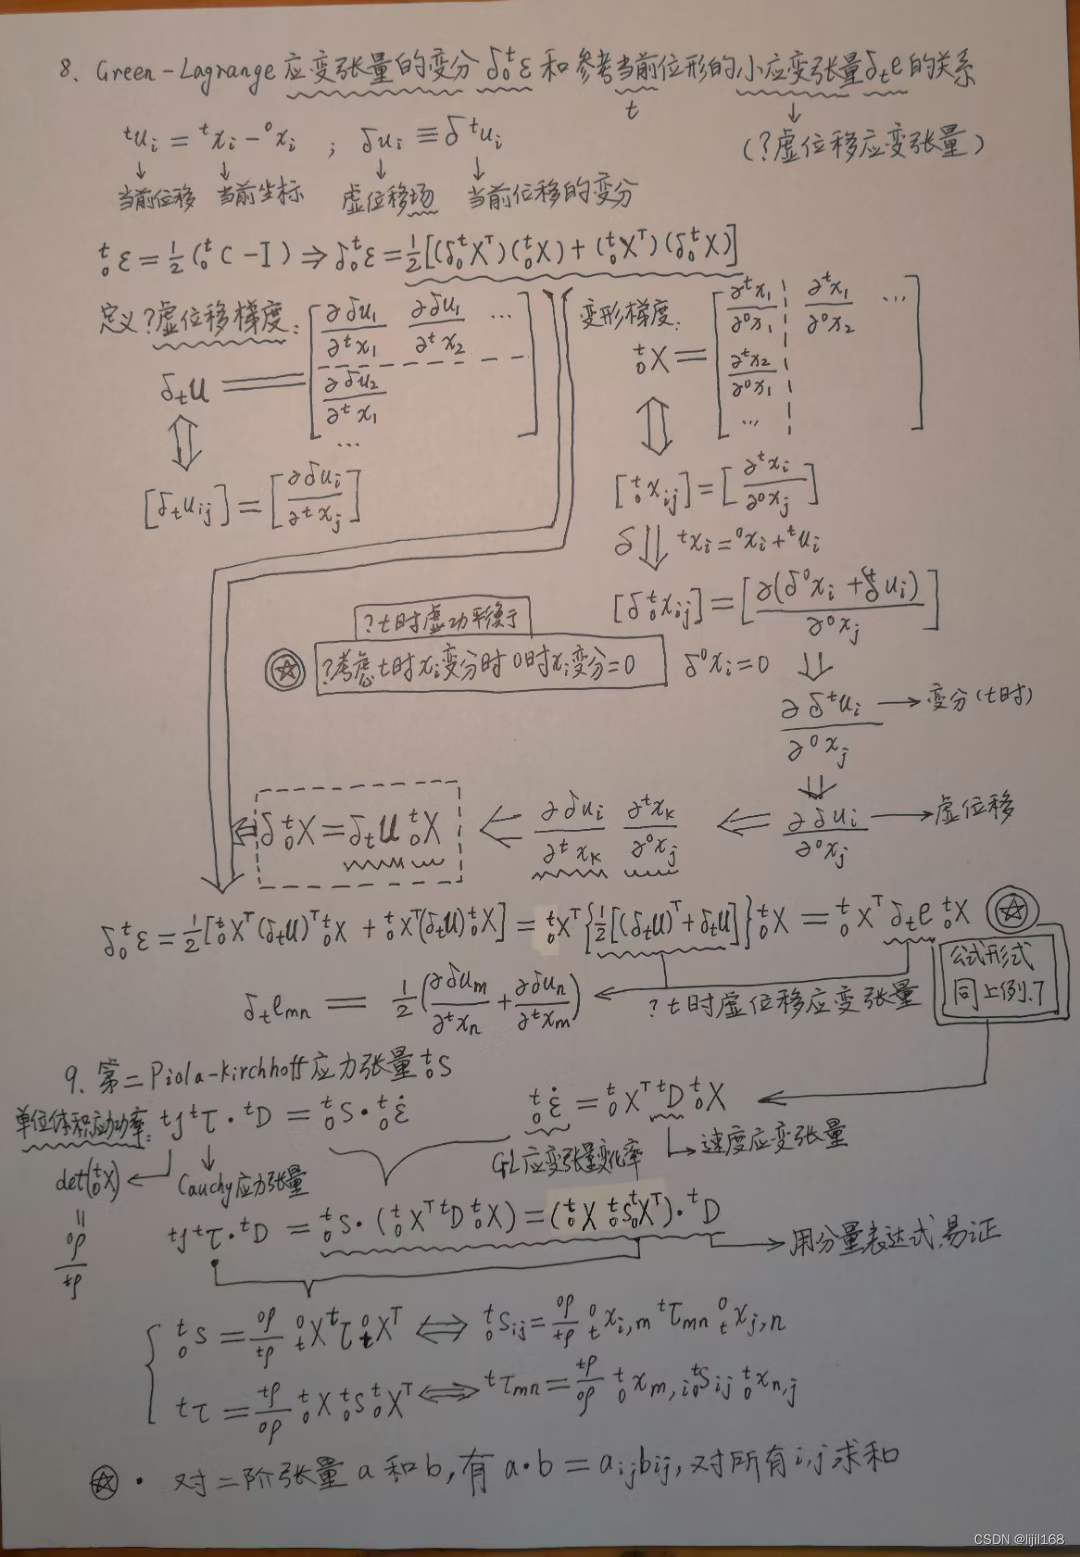 8、Green-Lagrange应变张量的变分 δ₀ᵗε 和参考当前位形的小应变张量δₜe的关系
t
(?虚位移应变张量)
ᵗuᵢ = ᵗxᵢ - ⁰xᵢ ; δuᵢ ≡ δᵗuᵢ
当前位移 当前坐标 虚位移场 当前位移的变分
₀ᵗε = ½(₀ᵗC - I) ⇒ δ₀ᵗε = ½[(δ₀ᵗXᵀ)(₀ᵗX) + (₀ᵗXᵀ)(δ₀ᵗX)]
定义?虚位移梯度:
δₜu = [∂δu₁/∂ᵗx₁ ∂δu₁/∂ᵗx₂ ⋯ ∂δu₂/∂ᵗx₁ ⋯]
⇕
[δₜuᵢⱼ] = [∂δuᵢ/∂ᵗxⱼ]
变形梯度:
₀ᵗX = [∂ᵗx₁/∂⁰x₁ ∂ᵗx₁/∂⁰x₂ ⋯ ∂ᵗx₂/∂⁰x₁ ⋯]
⇕
[₀ᵗxᵢⱼ] = [∂ᵗxᵢ/∂⁰xⱼ]
δ⇓ ᵗxᵢ = ⁰xᵢ + ᵗuᵢ
[δ₀ᵗxᵢⱼ] = [∂(δ⁰xᵢ + δᵗuᵢ)/∂⁰xⱼ]
?t时虚功平衡于
?考虑t时xᵢ变分时 0时xᵢ变分=0
δ⁰xᵢ = 0 ⇓
∂δᵗuᵢ/∂⁰xⱼ → 变分(t时)
⇓
δ₀ᵗX = δₜu ₀ᵗX ⇐ ∂δuᵢ/∂ᵗxₖ ∂ᵗxₖ/∂⁰xⱼ ⇐ ∂δuᵢ/∂⁰xⱼ → 虚位移
δ₀ᵗε = ½[₀ᵗXᵀ(δₜu)ᵀ₀ᵗX + ₀ᵗXᵀ(δₜu)₀ᵗX] = ₀ᵗXᵀ{½[(δₜu)ᵀ + δₜu]}₀ᵗX = ₀ᵗXᵀ δₜe ₀ᵗX
公式形式
同上例.7
δₜeₘₙ = ½(∂δuₘ/∂ᵗxₙ + ∂δuₙ/∂ᵗxₘ) ← ?t时虚位移应变张量
9、第二Piola-Kirchhoff应力张量₀ᵗS
单位体积应功率: ᵗJᵗτ·ᵗD = ₀ᵗS·₀ᵗε̇
₀ᵗε̇ = ₀ᵗXᵀ ᵗD ₀ᵗX
GL应变张量变化率 速度应变张量
det(₀ᵗX) ← Cauchy应力张量
= ⁰ρ/ᵗρ
ᵗJᵗτ·ᵗD = ₀ᵗS·(₀ᵗXᵀ ᵗD ₀ᵗX) = (₀ᵗX ₀ᵗS ₀ᵗXᵀ)·ᵗD
→ 用分量表达式,易证
₀ᵗS = ⁰ρ/ᵗρ ₜ⁰X ᵗτ ₜ⁰Xᵀ ⟺ ₀ᵗSᵢⱼ = ⁰ρ/ᵗρ ₜ⁰xᵢ,ₘ ᵗτₘₙ ₜ⁰xⱼ,ₙ
ᵗτ = ᵗρ/⁰ρ ₀ᵗX ₀ᵗS ₀ᵗXᵀ ⟺ ᵗτₘₙ = ᵗρ/⁰ρ ₀ᵗxₘ,ᵢ ₀ᵗSᵢⱼ ₀ᵗxₙ,ⱼ
· 对二阶张量a和b,有 a·b = aᵢⱼbᵢⱼ, 对所有i,j求和
CSDN @lijil168